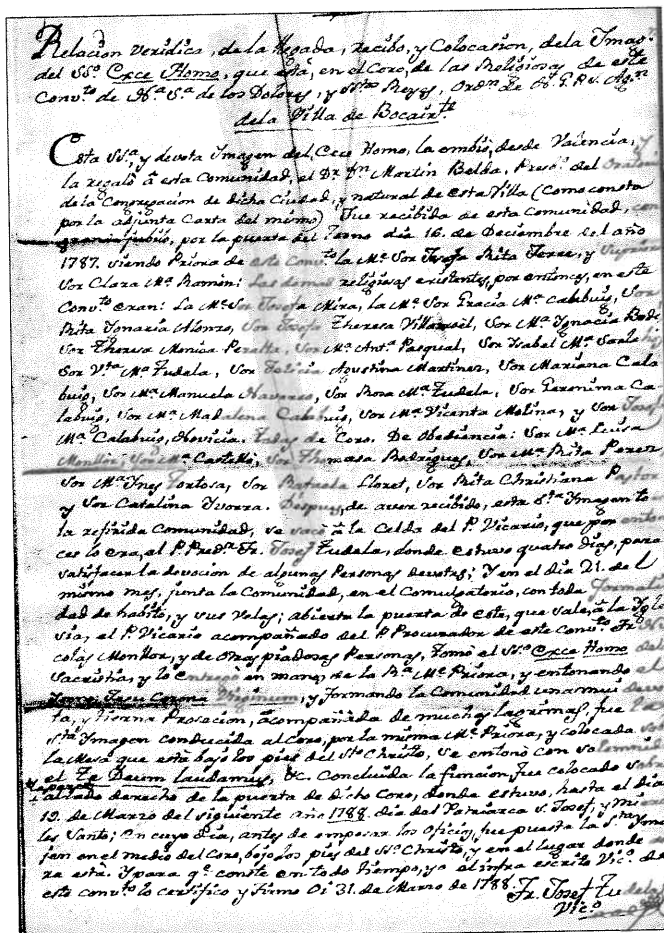 Relacion veridica, de la llegada, recibo, y Colocasion, dela Ymag.
del SSº Ecce Homo, que está, en el Coro, de las Religiosas de este
Convto de Nª Sª de los Dolores, y Stos Reyes, Ordn de
dela Villa de Bocairte
Esta SSª, y devota Ymagen del Ecce Homo, la embió, desde Valencia, y
la regaló à esta Comunidad, el Dr. Dn Martin Belda, Presº del Oratorio
de la Congregacion de dicha Ciudad, y natural de esta Villa (como consta
por la adjunta Carta del mismo) Fue recibida de esta Comunidad, con
jubilo, por la puerta del Torno dia 16. de Deciembre del año
1787. siendo Priora de este Convto la Mº Sor Josefa Rita Ferre, y
Sor Clara Mª Ramon: Las demas religiosas existentes, por entonces, en este
Convto eran: La Mº Sor Josefa Mira, la Mº Sor Gracia Mª Calabuig, Sor
Rita Ignacia Alonzo, Sor Josefa Theresa Villarroil, Sor Mª Ignacia
Sor Theresa Monica Peralta, Sor Mª Antª Pasqual, Sor Ysabel Mª
Sor Vtª Mª Tudela, Sor Felicia Agustina Martinez, Sor Mariana Cala
buig, Sor Mª Manuela Navarro, Sor Rosa Mª Tudela, Sor Geronima Ca
labuig, Sor Mª Madalena Calabuig, Sor Mª Vicenta Molina, y Sor Josefa
Mª Calabuig, Novicia. Todas de Coro. De Obediencia: Sor Mª Luisa
Monllor, Sor Mª Castelló, Sor Thomasa Rodrigues, Sor Mª Rita Perez
Sor Mª Ynes Tortosa, Sor Rafaela Lloret, Sor Rita Christiana Pastor
y Sor Catalina Yvorra. Despues, de aver recibido, esta Sª Ymagen to
la referida Comunidad, se sacó à la Celda del P. Vicario, que por enton
ces lo era, el P. Predr Fr. Josef Tudela, donde estuvo quatro dias, para
satisfacer la devocion de algunas Personas devotas; Y en el dia 21. de l
mismo mes, junta la Comunidad, en el Comulgatorio, con toda formali
dad de habito, y sus Velas; abierta la puerta de este, que sale, à la Ygle
sia, el P. Vicario acompañado del P. Procurador de este Convto Fr. Ni
colas Monllor, y de otras piadosas Personas, tomó el SSº Ecce Homo de la
Sacristia, y lo entregó en manos de la Rª Mº Priora, y entonando el
Jesu Corona Virginum, y formando la Comunidad una mui devo
ta, y tierna Prosecion, acompañada de muchas lagrimas, fue la
Sta Ymagen conducida al Coro, por la misma Mº Priora, y colocada sobre
la Mesa que está bajo los pies del Sto Christo, se entonó con solemnidad
el Te Deum laudamus, &c. Concluida la funcion, fue colocado sobre
al lado derecho de la puerta de dicho Coro, donde estuvo, hasta el dia
19. de Marzo del siguiente año 1788. dia del Patriarca S. Josef, y Mierco
les Santo; en cuyo dia, antes de empesar los Oficios, fue puesta la Sta Yma
jen en el medio del Coro, bajo los pies del SSº Christo, y en el lugar donde
ra está. Y para qe conste en todo tiempo, yo el infra escrito Vicº de
este convto lo certifico y firmo Oi 31. de Marzo de 1788.
Fr. Josef Tudela
Vicº